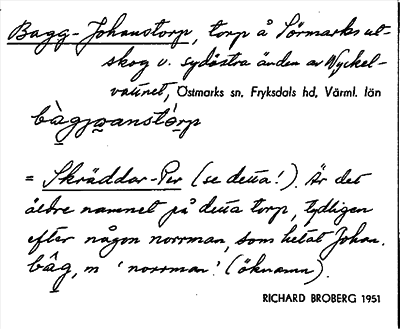 Bagg-Johanstorp, torp å Sörmarks ut-
skog v. sydöstra änden av Nyckel-
vattnet, Östmarks sn, Fryksdals hd, Värml. län
bàgjo̱anstò̱rp
= Skräddar-Per (se detta!). Är det
äldre namnet på detta torp, tydligen
efter någon norrman, som hetat Johan.
bâg, m 'norrman' (öknamn).
RICHARD BROBERG 1951